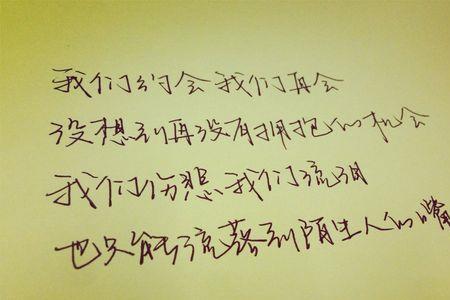 我们约会 我们再会
没想到再没有拥抱的机会
我们伤感 我们流泪
也只能流落到陌生人的嘴